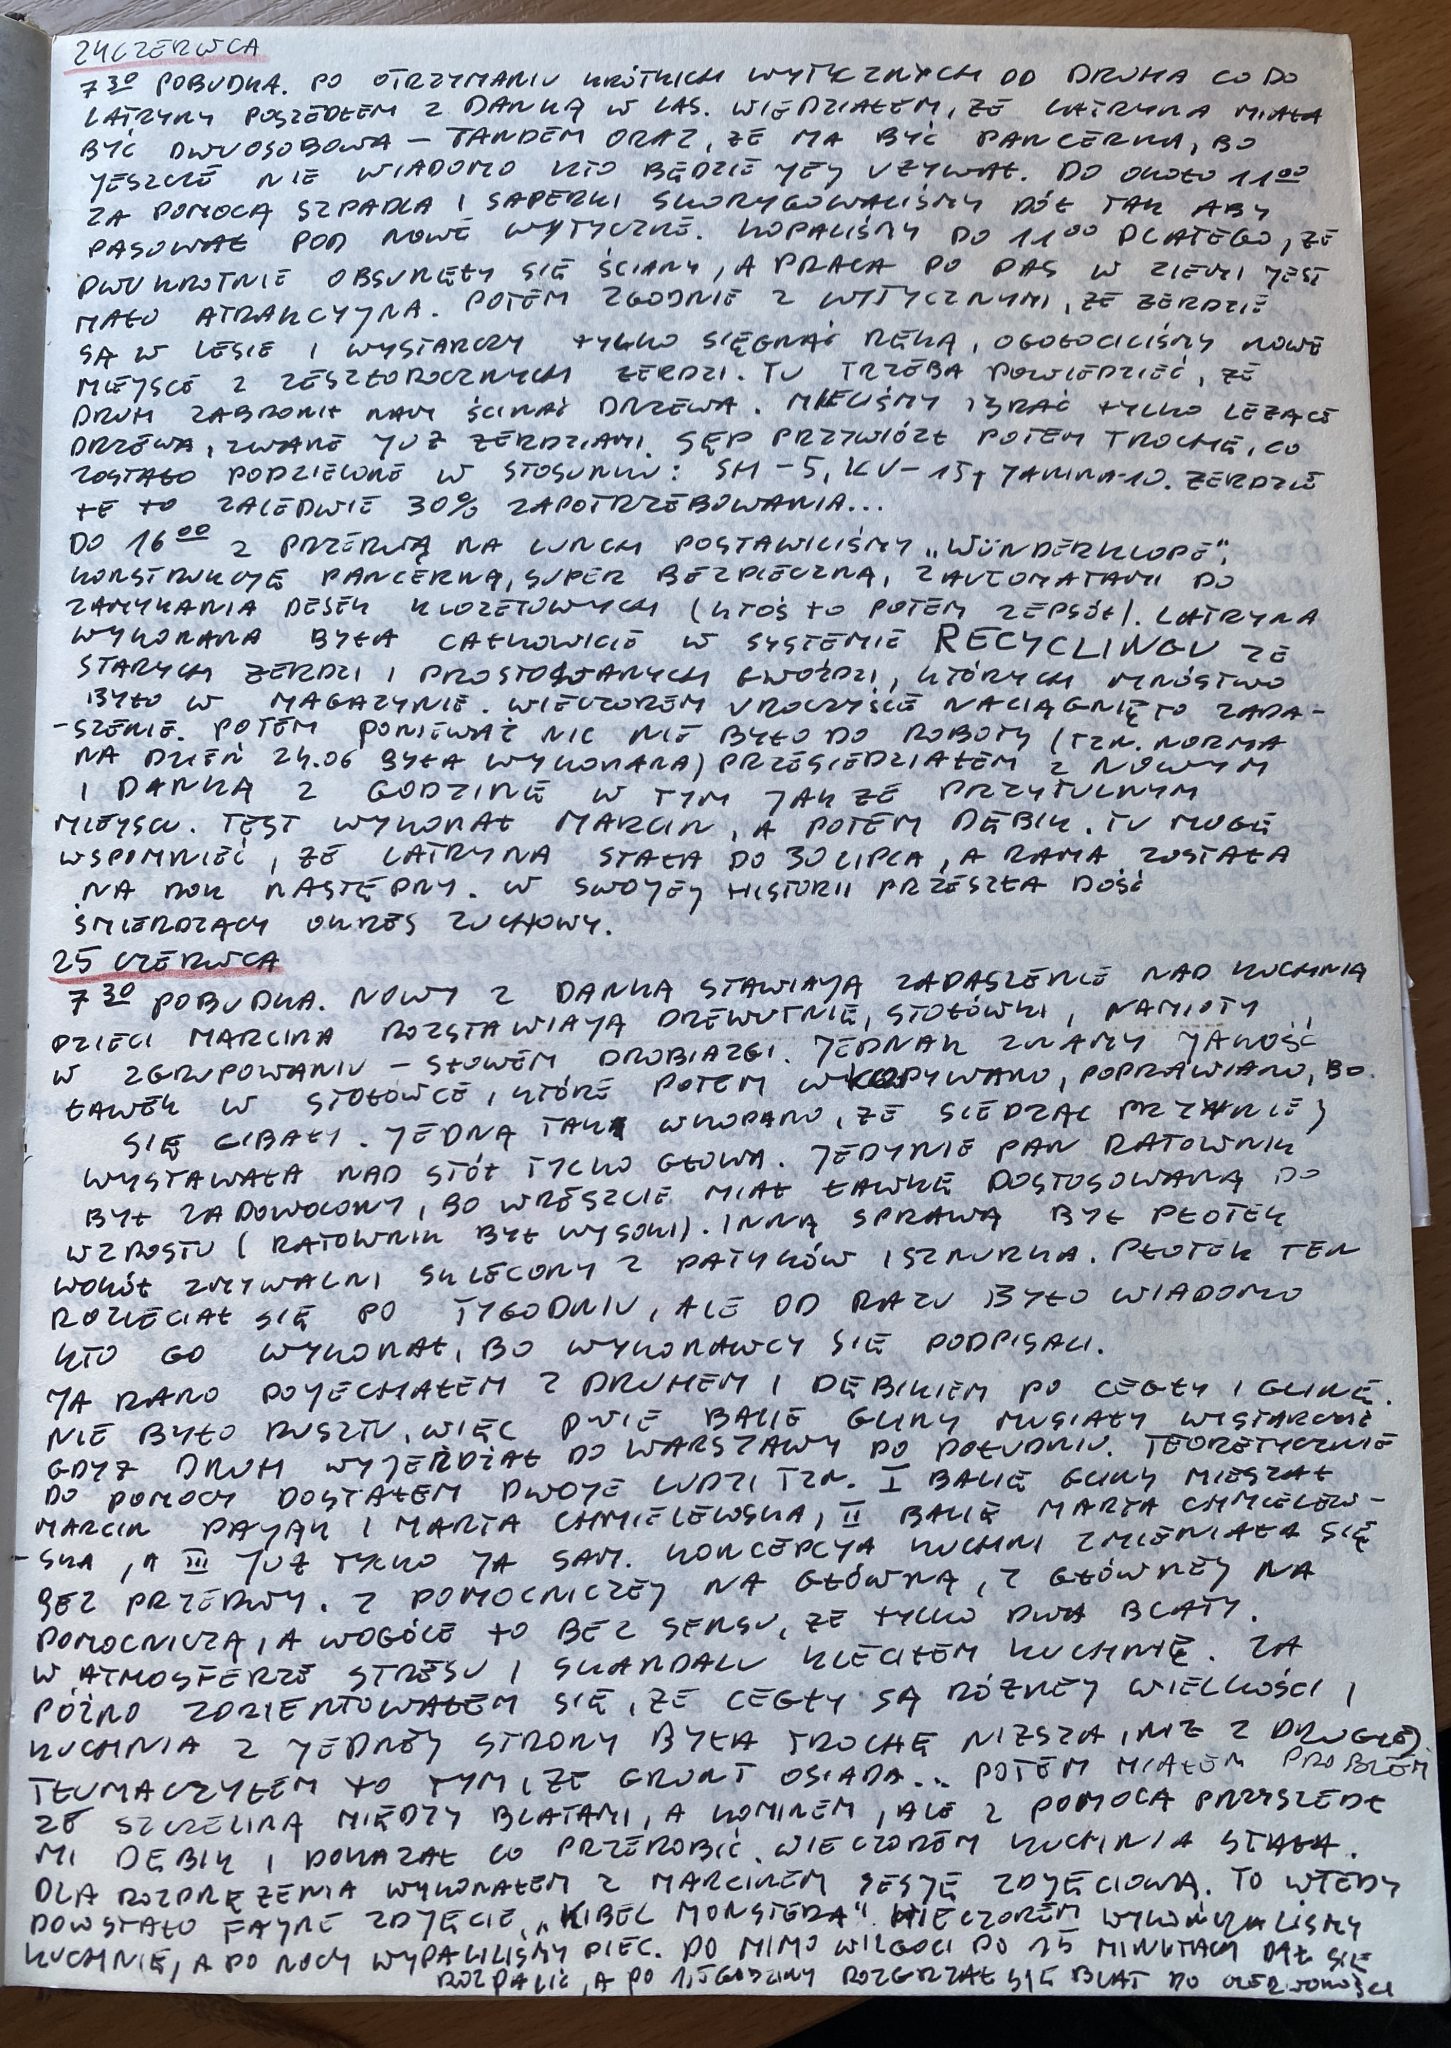 24 CZERWCA
7³⁰ POBUDKA. PO OTRZYMANIU KRÓTKICH WYTYCZNYCH OD DRUHA CO DO
LATRYNY POSZEDŁEM Z DANKĄ W LAS. WIEDZIAŁEM, ŻE LATRYNA MIAŁA
BYĆ DWUOSOBOWA – TANDEM ORAZ, ŻE MA BYĆ PANCERNA, BO
JESZCZE NIE WIADOMO KTO BĘDZIE JEJ UŻYWAŁ. DO OKOŁO 11⁰⁰
ZA POMOCĄ SZPADLA I SAPERKI SKORYGOWALIŚMY DÓŁ TAK ABY
PASOWAŁ POD NOWE WYTYCZNE. KOPALIŚMY DO 11⁰⁰ DLATEGO, ŻE
DWUKROTNIE OBSUNĘŁY SIĘ ŚCIANY, A PRACA PO PAS W ZIEMI JEST
MAŁO ATRAKCYJNA. POTEM ZGODNIE Z WYTYCZNYMI, ŻE ŻERDZIE
SĄ W LESIE I WYSTARCZY TYLKO SIĘGNĄĆ RĘKĄ, OGOŁOCILIŚMY NOWE
MIEJSCE Z ZESZŁOROCZNYCH ŻERDZI. TU TRZEBA POWIEDZIEĆ, ŻE
DRUH ZABRONIŁ NAM ŚCINAĆ DRZEWA. MIELIŚMY ZBRAĆ TYLKO LEŻĄCE
DRZEWA, ZWANE JUŻ ŻERDZIAMI. SĘP PRZYWIÓZŁ POTEM TROCHĘ, CO
ZOSTAŁO PODZIELONE W STOSUNKU: SH – 5, KV – 15, JANINA-10. ŻERDZIE
TE TO ZALEDWIE 30% ZAPOTRZEBOWANIA...
DO 16⁰⁰ Z PRZERWĄ NA LUNCH POSTAWILIŚMY „WÜNDERKLOPE",
KONSTRUKCJĘ PANCERNĄ, SUPER BEZPIECZNĄ, Z AUTOMATAMI DO
ZAMYKANIA DESEK KLOZETOWYCH (KTOŚ TO POTEM ZEPSÓŁ). LATRYNA
WYKONANA BYŁA CAŁKOWICIE W SYSTEMIE RECYCLINGU ZE
STARYCH ŻERDZI I PROSTOWANYCH GWOŹDZI, KTÓRYCH MNÓSTWO
BYŁO W MAGAZYNIE. WIECZOREM UROCZYŚCIE NACIĄGNIĘTO ZADA-
-SZENIE. POTEM PONIEWAŻ NIC NIE BYŁO DO ROBOTY (TZN. NORMA
NA DZIEŃ 24.06 BYŁA WYKONANA) PRZESIEDZIAŁEM Z NOWYM
I DANKĄ Z GODZINĘ W TYM JAKŻE PRZYTULNYM
MIEJSCU. TEST WYKONAŁ MARCIN, A POTEM DĘBIK. TU MOGĘ
WSPOMNIEĆ, ŻE LATRYNA STAŁA DO 30 LIPCA, A RAMA ZOSTAŁA
NA ROK NASTĘPNY. W SWOJEJ HISTORII PRZESZŁA DOŚĆ
ŚMIERDZĄCY OKRES ZUCHOWY.
25 CZERWCA
7³⁰ POBUDKA. NOWY Z DANKĄ STAWIAJĄ ZADASZENIE NAD KUCHNIĄ
DZIECI MARCINA ROZSTAWIAJĄ DREWUTNIĘ, STOŁÓWKI, NAMIOTY
W ZGRUPOWANIU – SŁOWEM DROBIAZGI. JEDNAK ZNAMY JAKOŚĆ
ŁAWEK W STOŁÓWCE, KTÓRE POTEM WKOPYWANO, POPRAWIANO, BO
SIĘ GIBAŁY. JEDNĄ TAK WKOPANO, ŻE SIEDZĄC PRZY NIEJ
WYSTAWAŁA NAD STÓŁ TYLKO GŁOWA. JEDYNIE PAN RATOWNIK
BYŁ ZADOWOLONY, BO WRESZCIE MIAŁ ŁAWKĘ DOSTOSOWANĄ DO
WZROSTU (RATOWNIK BYŁ WYSOKI). INNĄ SPRAWĄ BYŁ PŁOTEK
WOKÓŁ ZMYWALNI SKLECONY Z PATYKÓW I SZNURKA. PŁOTEK TEN
ROZLECIAŁ SIĘ PO TYGODNIU, ALE OD RAZU BYŁO WIADOMO
KTO GO WYKONAŁ, BO WYKONAWCY SIĘ PODPISALI.
JA RANO POJECHAŁEM Z DRUHEM I DĘBIKIEM PO CEGŁY I GLINĘ.
NIE BYŁO RUSZTU, WIĘC DWIE BALIE GLINY MUSIAŁY WYSTARCZYĆ
GDYŻ DRUH WYJEŻDŻAŁ DO WARSZAWY DO POŁUDNIU. TEORETYCZNIE
DO POMOCY DOSTAŁEM DWOJE LUDZI TZN. I BALIĘ GLINY MIESZAŁ
MARCIN PAJĄK I MARTA CHMIELEWSKA, II BALIĘ MARTA CHMIELEW-
-SKA, A III JUŻ TYLKO JA SAM. KONCEPCJA KUCHNI ZMIENIAŁA SIĘ
BEZ PRZERWY. Z POMOCNICZEJ NA GŁÓWNĄ, Z GŁÓWNEJ NA
POMOCNICZĄ, A WOGÓLE TO BEZ SENSU, ŻE TYLKO DWA BLATY.
W ATMOSFERZE STRESU I SKANDALU KLECIŁEM KUCHNIĘ. ZA
PÓŹNO ZORIENTOWAŁEM SIĘ, ŻE CEGŁY SĄ RÓŻNEJ WIELKOŚCI I
KUCHNIA Z JEDNEJ STRONY BYŁA TROCHĘ NIŻSZA, NIŻ Z DRUGIEJ.
TŁUMACZYŁEM TO TYM, ŻE GRUNT OSIADA... POTEM MIAŁEM PROBLEM
ZE SZCZELINĄ MIĘDZY BLATAMI, A KOMINEM, ALE Z POMOCĄ PRZYSZEDŁ
MI DĘBIK I POKAZAŁ CO PRZEROBIĆ. WIECZOREM KUCHNIA STAŁA.
DLA ROZPRĘŻENIA WYKONAŁEM Z MARCINEM SESJĘ ZDJĘCIOWĄ. TO WTEDY
POWSTAŁO FAJNE ZDJĘCIE „KIBEL MONSTERA". WIECZOREM WYKOŃCZALIŚMY
KUCHNIĘ, A PO NOCY WYPALILIŚMY PIEC. PO MIMO WILGOCI PO 15 MINUTACH DAŁ SIĘ
ROZPALIĆ, A PO 1,5 GODZINY ROZGRZAŁ SIĘ BLAT DO CZERWONOŚCI